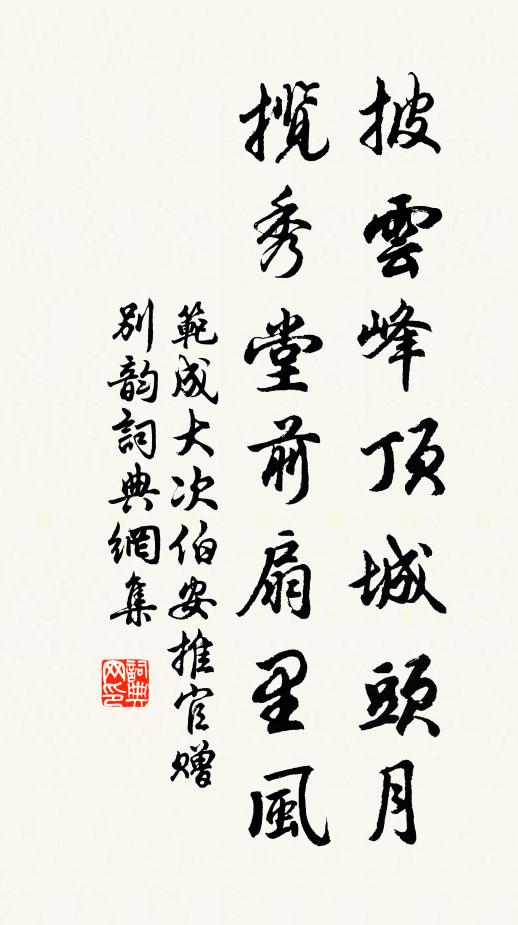 披雲峰頂城頭月
攬秀堂前扇里風
範成大次伯安推官贈
別韵詞典網集
詞典网印